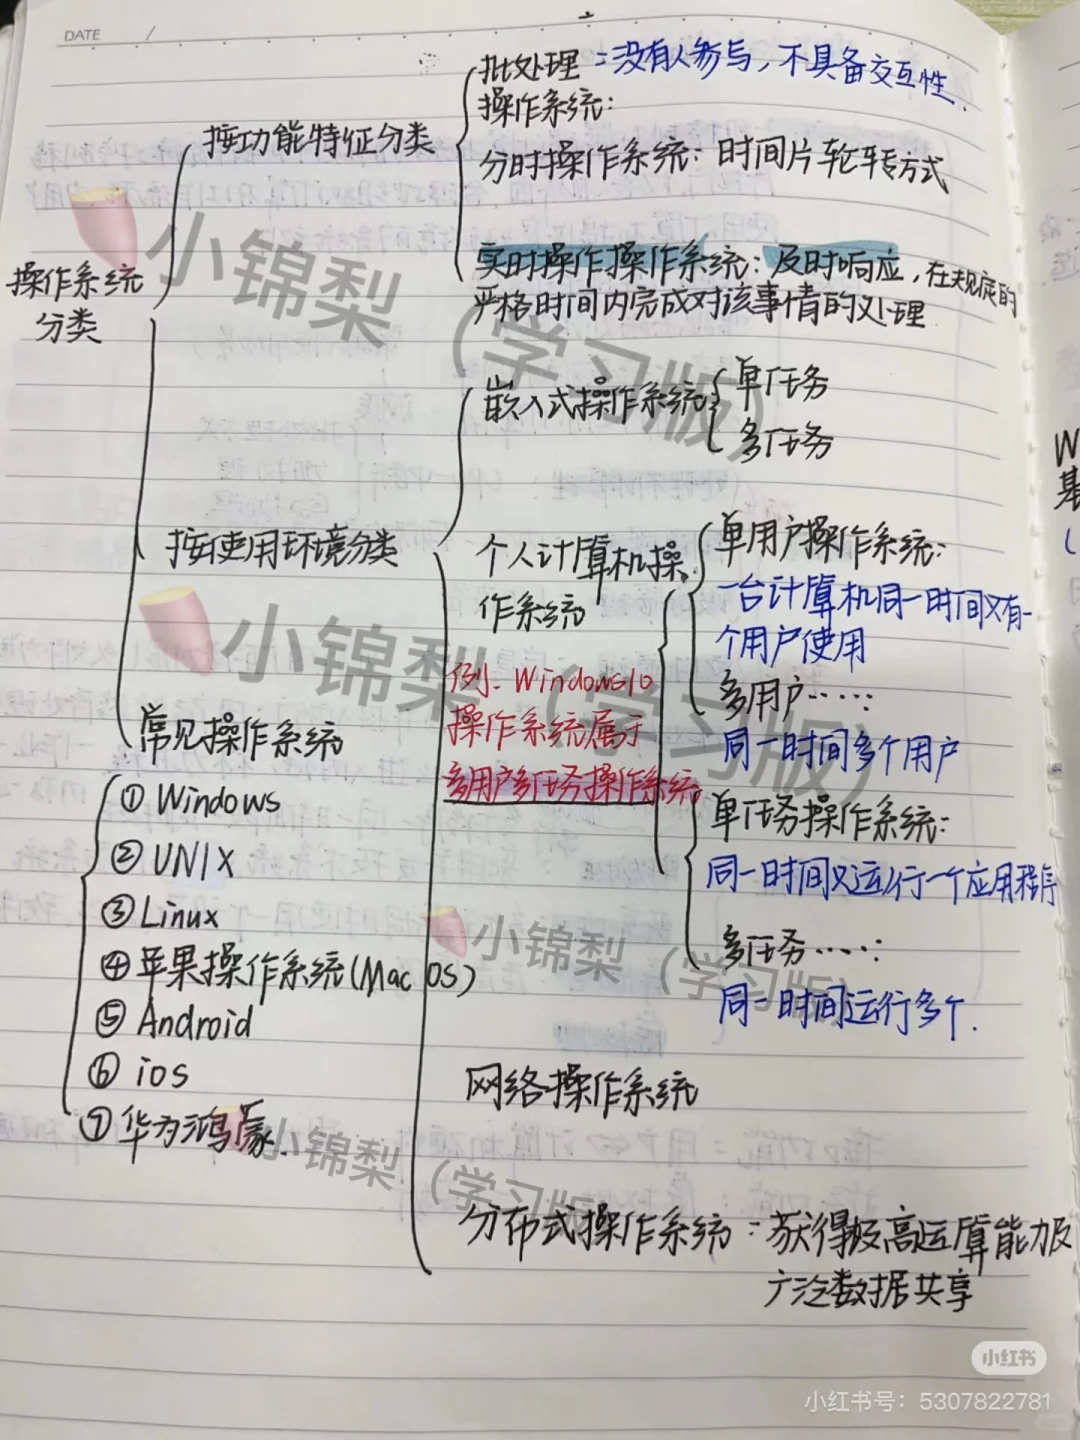 DATE /
批处理：没有人参与，不具备交互性.
操作系统：
按功能特征分类
分时操作系统：时间片轮转方式
实时操作操作系统：及时响应，在规定的
严格时间内完成对该事情的处理
操作系统
分类
嵌入式操作系统
单任务
多任务
按使用环境分类
个人计算机操
作系统
单用户操作系统：
一台计算机同一时间又有一
个用户使用
多用户……：
同一时间多个用户
例. Windows10
操作系统属于
多用户多任务操作系统
单任务操作系统：
同一时间又运行一个应用程序
多任务……：
同一时间运行多个.
常见操作系统
① Windows
② UNIX
③ Linux
④ 苹果操作系统(Mac OS)
⑤ Android
⑥ ios
⑦ 华为鸿蒙.
网络操作系统
分布式操作系统：获得极高运算能力及
广泛数据共享
W
基
(
小锦梨（学习版）
小锦梨（学习版）
小锦梨（学习版）
小锦梨（学习版）
小红书
小红书号：5307822781